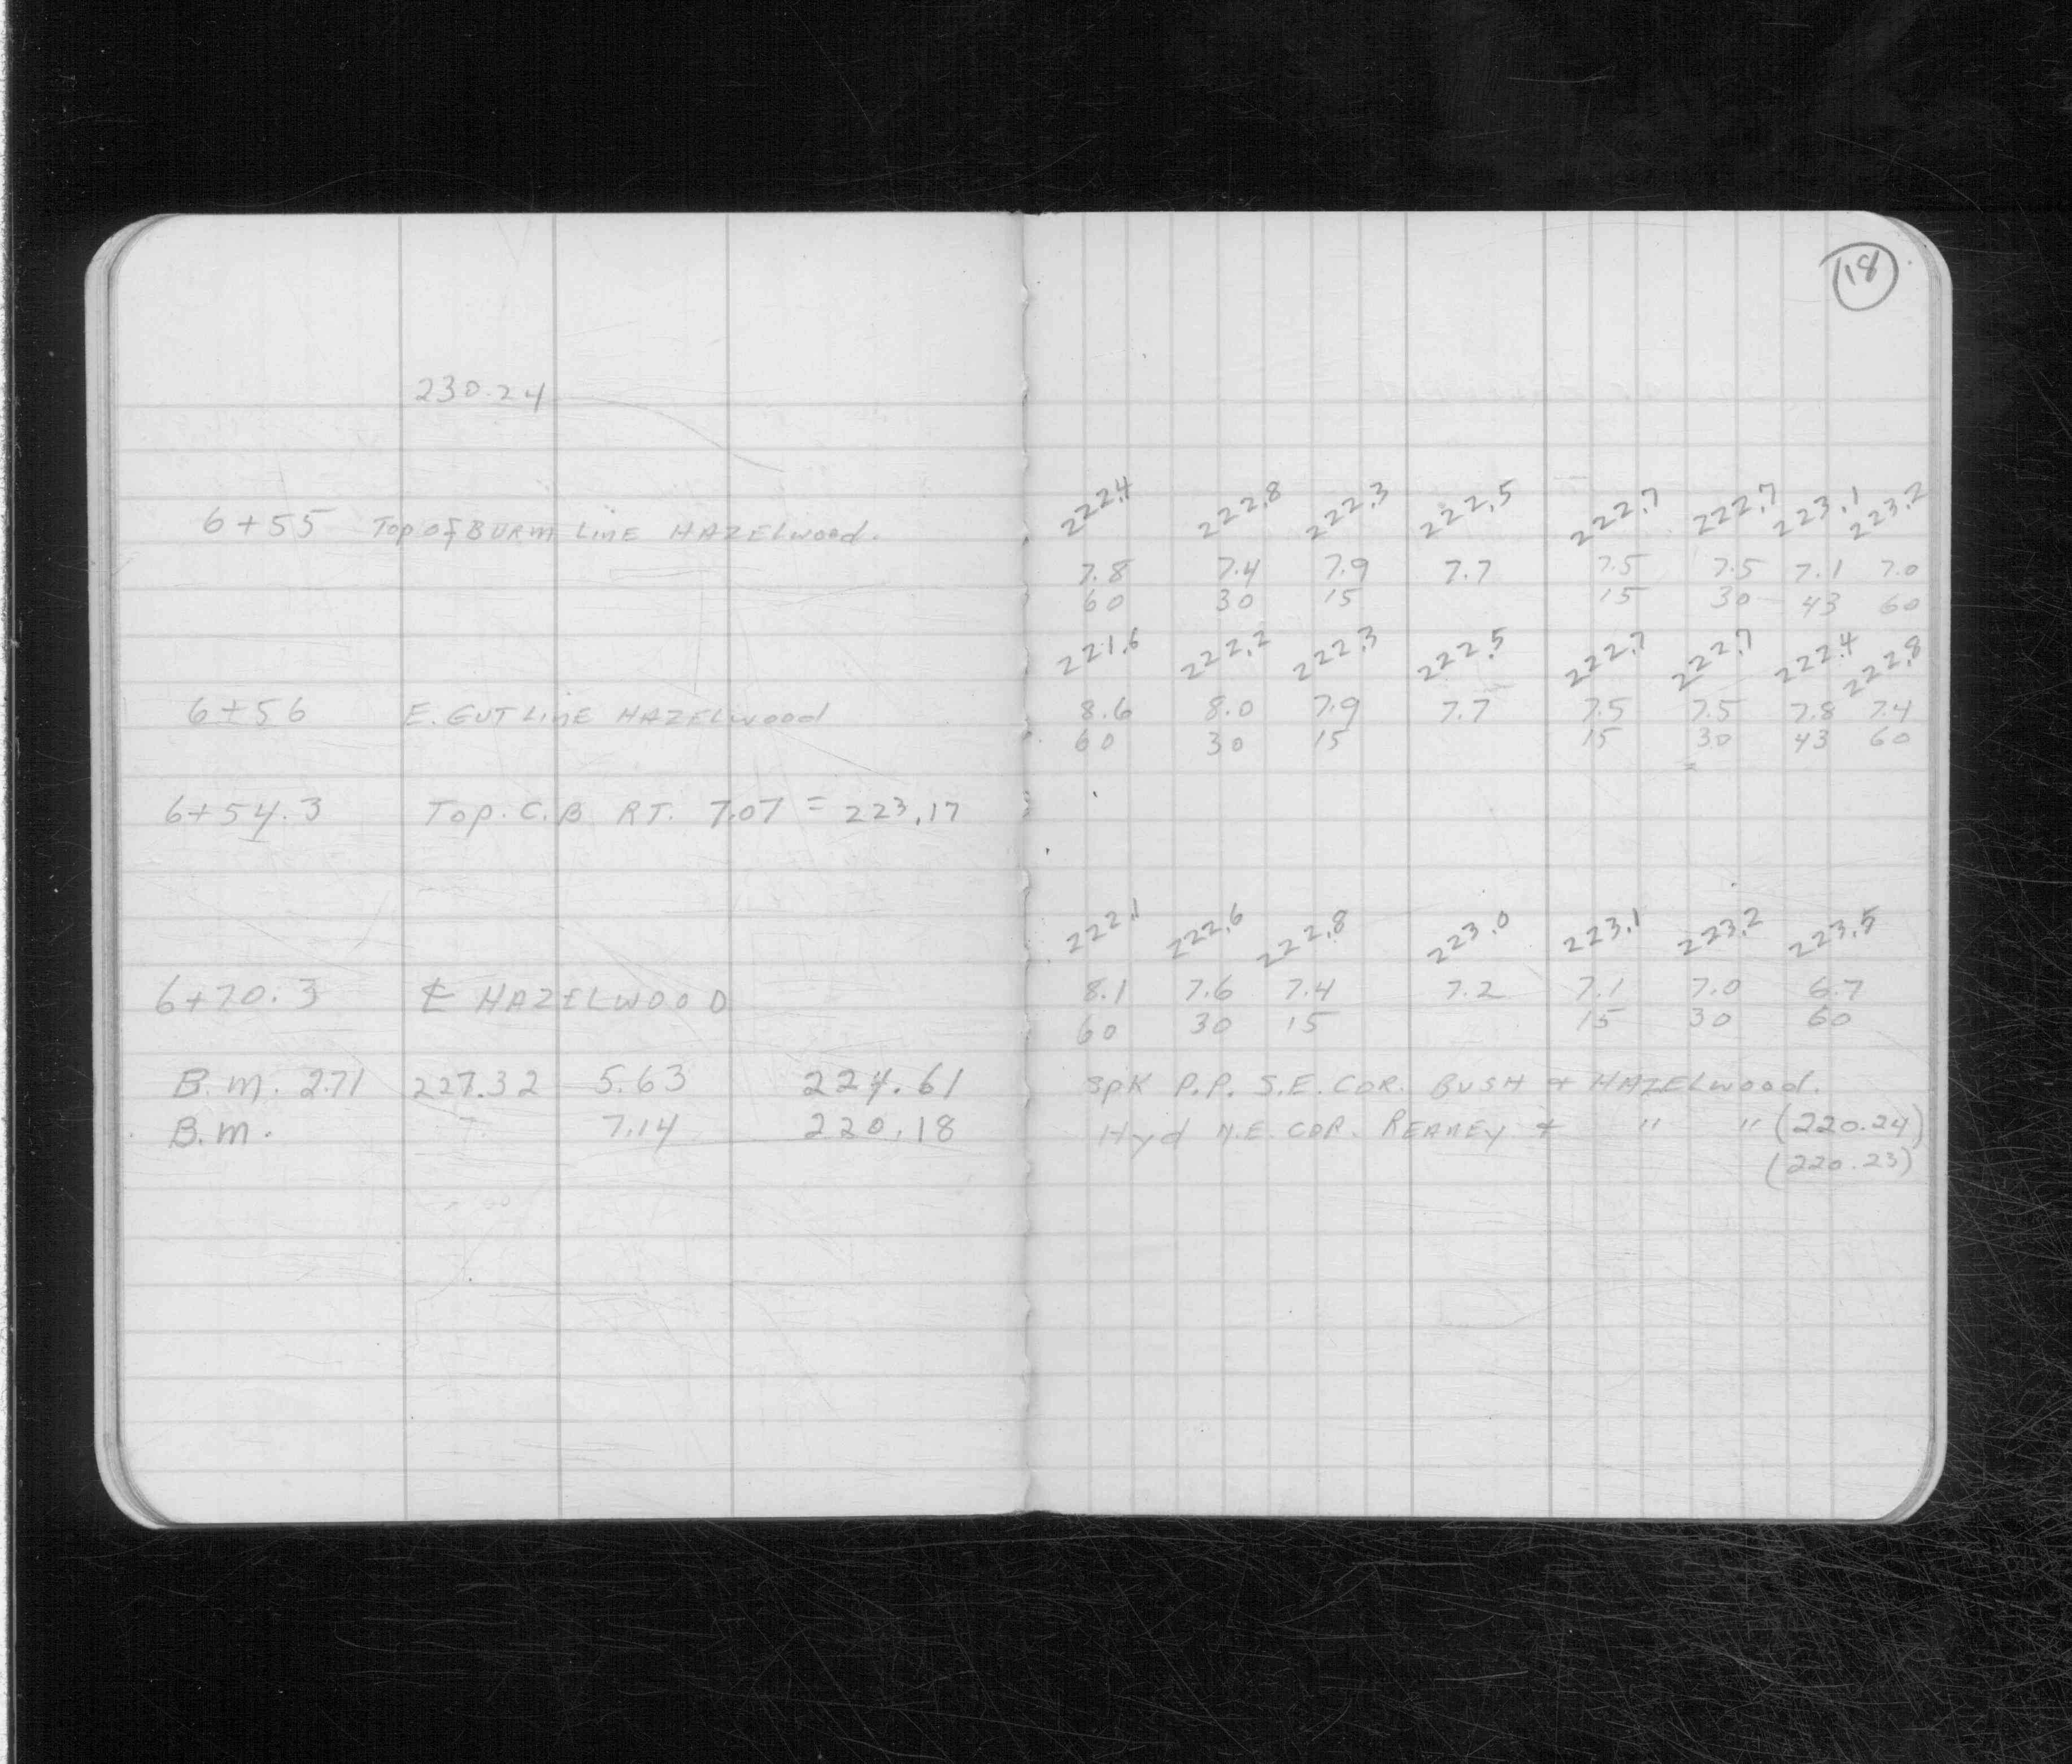 18
230.24
222.4 222.8 222.3 222.5 222.7 222.7 223.1 223.2
6+55 Top of BURM LINE HAZELWOOD.
7.8 7.4 7.9 7.7 7.5 7.5 7.1 7.0
60 30 15 15 30 43 60
221.6 222.2 222.3 222.5 222.7 222.7 222.4 222.8
6+56 E. GUT LINE HAZELWOOD
8.6 8.0 7.9 7.7 7.5 7.5 7.8 7.4
60 30 15 15 30 43 60
6+54.3 TOP. C.B RT. 7.07 = 223.17
222.1 222.6 222.8 223.0 223.1 223.2 223.5
6+70.3 ℄ HAZELWOOD
8.1 7.6 7.4 7.2 7.1 7.0 6.7
60 30 15 15 30 60
B.M. 2.71 227.32 5.63 224.61 SPK P.P. S.E. COR. BUSH + HAZELWOOD.
B.M. 7.14 220.18 Hyd N.E. COR. REANEY + " " (220.24)
(220.23)